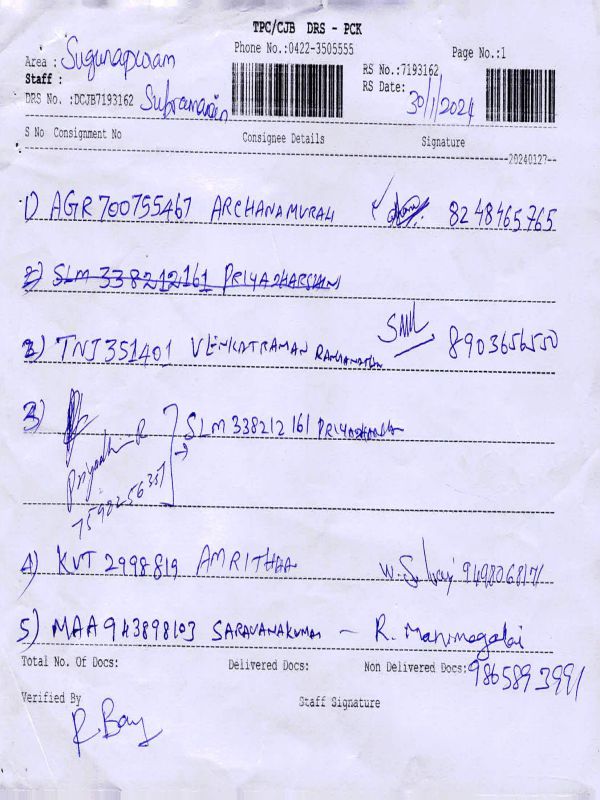 TPC/CJB DRS - PCK
Phone No.:0422-3505555
Page No.:1
Area : Sugunapuram
Staff : Subramanian
RS No.:7193162
RS Date: 30/1/2024
DRS No. :DCJB7193162
S No Consignment No Consignee Details Signature
20240127
1) AGR 700755467 ARCHANAMURALI 8248465765
2) SLM 338212161 PRIYADHARSHINI
2) TNJ351401 VENKATRAMAN RANGANATHAN 8903656550
3) SLM 338212161 PRIYADHARSHINI
4) KVT 2998819 AMRITHAA
5) MAA943898103 SARAVANAKUMAR - R. Manimegalai
Total No. Of Docs: Delivered Docs: Non Delivered Docs: 9865893991
Verified By Staff Signature